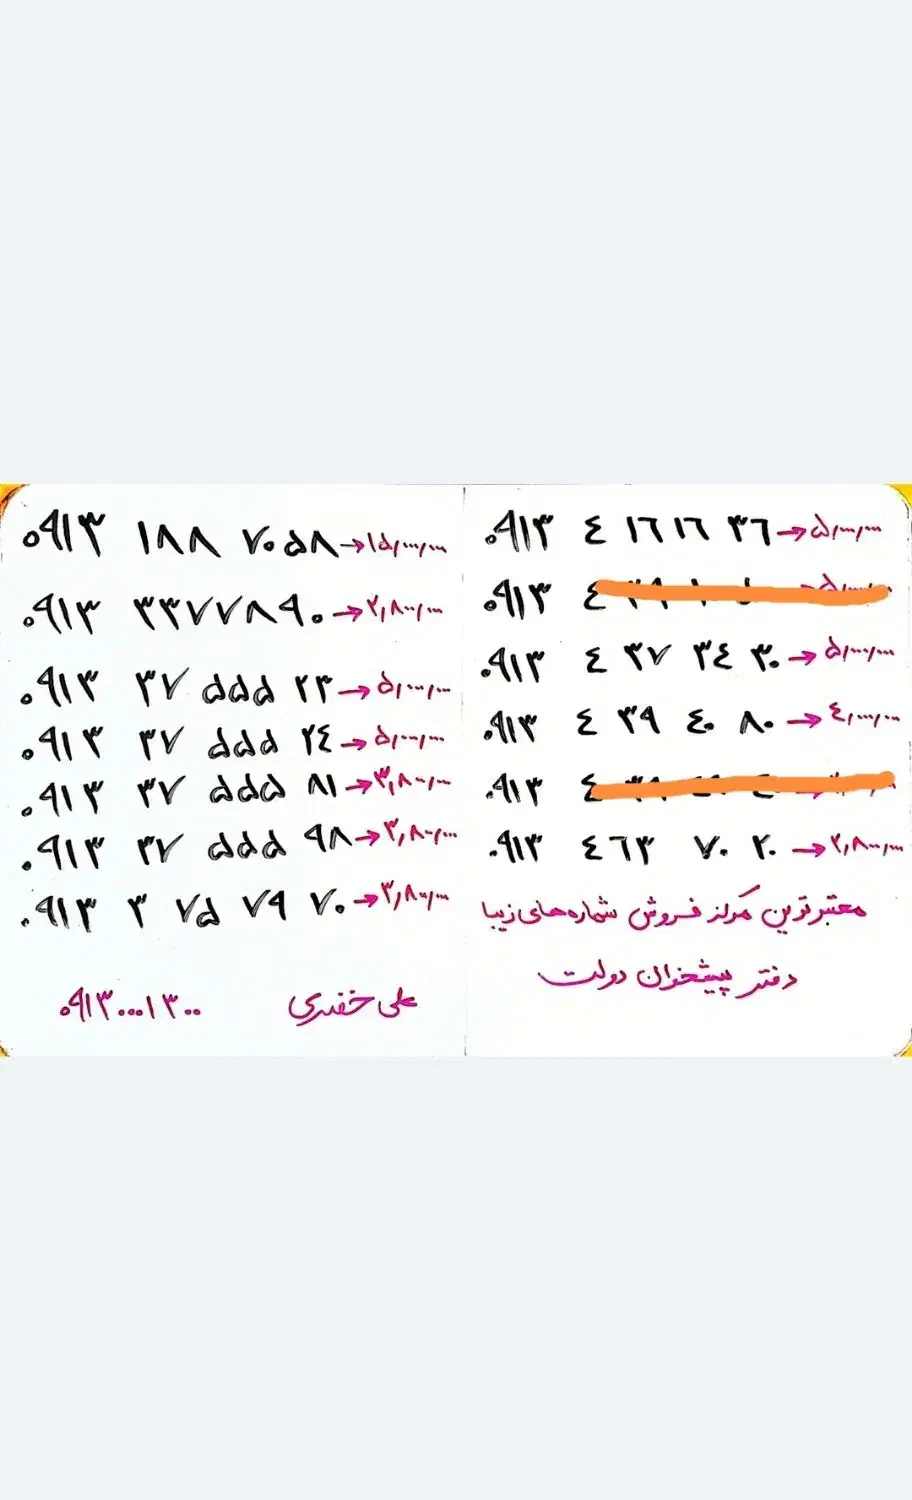 ۰۹۱۳ ٤ ۱٦ ۱٦ ۳٦ → ۵,۰۰۰,۰۰۰
۰۹۱۳ ٤
۰۹۱۳ ٤ ۳۷ ۳٤ ۳۰ → ۵,۰۰۰,۰۰۰
۰۹۱۳ ٤ ۳۹ ٤۰ ۸۰ → ٤,۰۰۰,۰۰۰
۰۹۱۳ ٤
۰۹۱۳ ٤٦۳ ۷۰ ۲۰ → ۲,۸۰۰,۰۰۰
معتبرترین مرکز فروش شماره‌های زیبا
دفتر پیشخوان دولت
۰۹۱۳ ۱۸۸ ۷۰۵۸ → ۱۵,۰۰۰,۰۰۰
۰۹۱۳ ۳۳۷۷۸۹۰ → ۲,۸۰۰,۰۰۰
۰۹۱۳ ۳۷ ۵۵۵ ۲۳ → ۵,۰۰۰,۰۰۰
۰۹۱۳ ۳۷ ۵۵۵ ۲٤ → ۵,۰۰۰,۰۰۰
۰۹۱۳ ۳۷ ۵۵۵ ۸۱ → ۳,۸۰۰,۰۰۰
۰۹۱۳ ۳۷ ۵۵۵ ۹۸ → ۳,۸۰۰,۰۰۰
۰۹۱۳ ۳ ۷۵ ۷۹ ۷۰ → ۳,۸۰۰,۰۰۰
علی خضری ۰۹۱۳۰۰۰۱۳۰۰